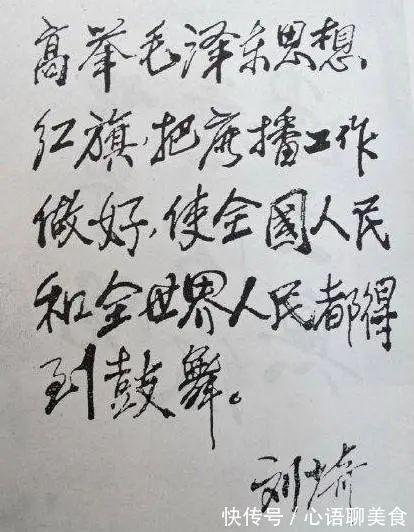 高举毛泽东思想
红旗，把广播工作
做好，使全國人民
和全世界人民都得
到鼓舞。
刘
快传号／心语聊美食